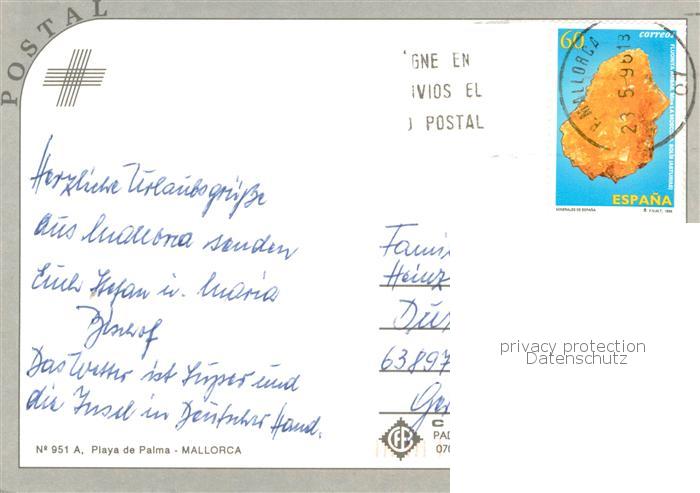 POSTAL
'GNE EN
IVIOS EL
POSTAL
P. MALLORCA
23 5 96 13
07
60
correos
ESPAÑA
MINERALES DE ESPAÑA
Herzliche Urlaubsgrüße
aus Mallorca senden
Euch Stefan u. Maria
Bischof
Das Wetter ist Super und
die Insel in Deutscher Hand.
Famil
Heinz
63897
Ger
privacy protection
Datenschutz
Nº 951 A, Playa de Palma - MALLORCA
PAD
070